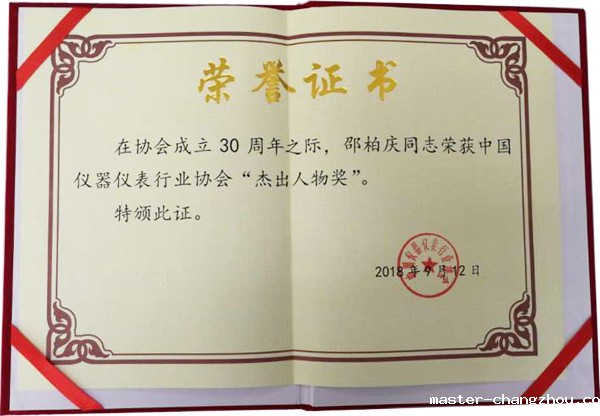 荣誉证书
在协会成立 30 周年之际，邵柏庆同志荣获中国
仪器仪表行业协会“杰出人物奖”。
特颁此证。
中国仪器仪表行业协会
2018 年 9 月 12 日
master-changzhou.co